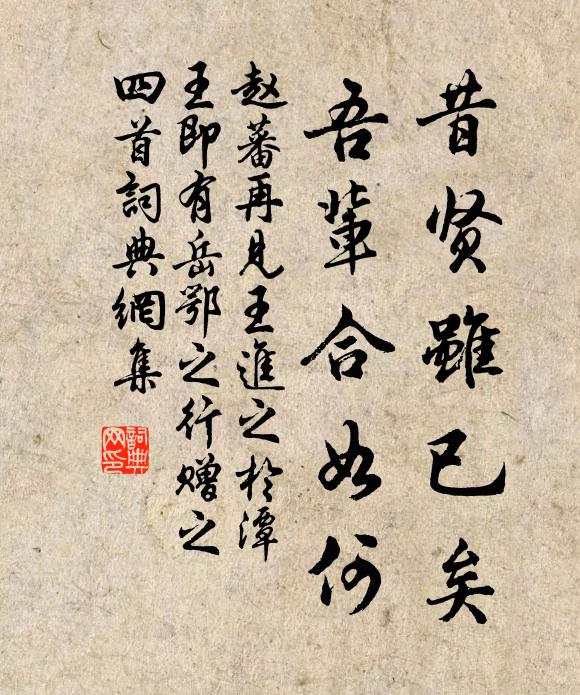 昔贤雖已矣
吾輩合如何
赵蕃再見王進之於潭
王即有岳鄂之行赠之
四首詞典網集
詞典
网印